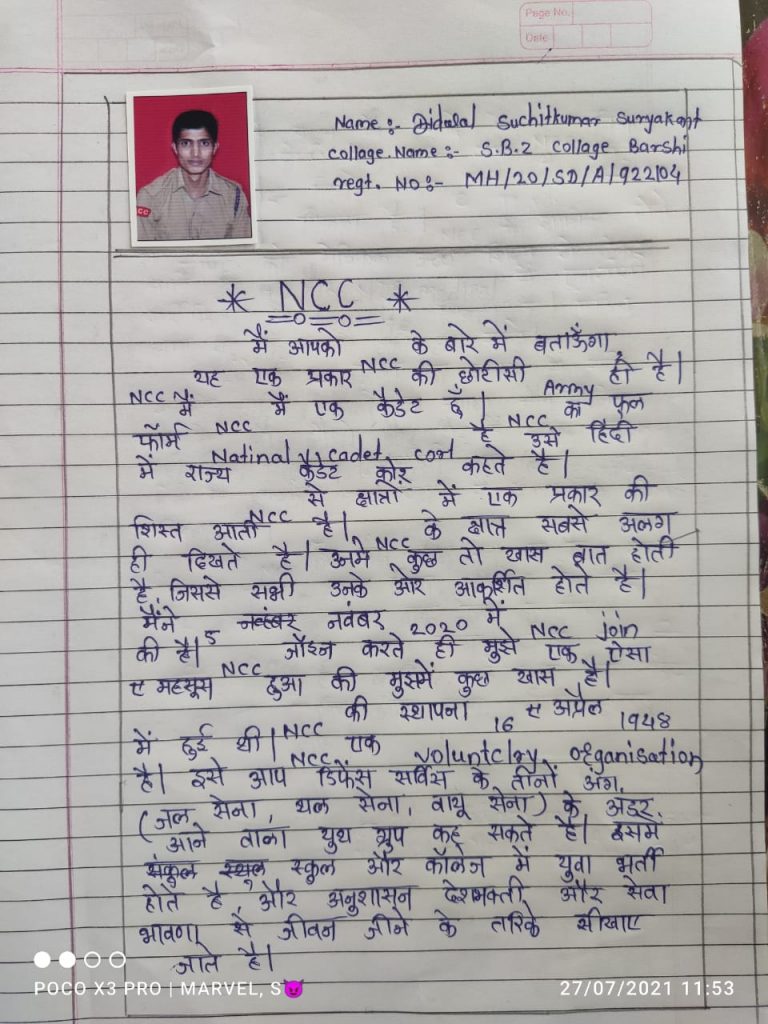 Page No.
Date
Name :- Didalal Suchitkumar Suryakant
collage.Name :- S.B.Z collage Barshi
regt. No :- MH/20/SD/A/922104
CC
* NCC *
मैं आपको NCC के बारे में बताऊँगा,
यह एक प्रकार की छोटीसी Army ही है।
NCC में मैं एक कैडेट हूँ। NCC का फुल
फॉर्म Natinal cadet cort है, उसे हिंदी
में राज्य कैडेट कोर कहते है।
NCC से छात्रो में एक प्रकार की
शिस्त आती है। NCC के छात्र सबसे अलग
ही दिखते है। उनमे कुछ तो खास बात होती
है, जिससे सभी उनके ओर आकर्शित होते है।
मैंने 5 नवंबर 2020 में NCC join
की है। NCC जॉइन करते ही मुझे एक ऐसा
महसूस हुआ की मुझमें कुछ खास है।
NCC की स्थापना 16 अप्रैल 1948
में हुई थी। NCC एक voluntclry organisation
है। इसे आप डिफेंस सर्विस के तीनों अंग,
(जल सेना, थल सेना, वायू सेना) के अंडर
आने वाला युथ ग्रुप कह सकते है। इसमें
स्कूल और कॉलेज में युवा भर्ती
होते है, और अनुशासन देशभक्ती और सेवा
भावणा से जीवन जीने के तरिके सीखाए
जाते है।
POCO X3 PRO | MARVEL, S😈
27/07/2021 11:53